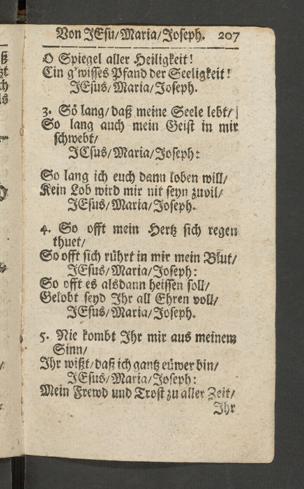 Von JEsu/Maria/Joseph. 207
O Spiegel aller Heiligkeit!
Ein g'wisses Pfand der Seeligkeit!
JEsus/Maria/Joseph.
3. So lang/daß meine Seele lebt/
So lang auch mein Geist in mir
schwebt/
JEsus/Maria/Joseph:
So lang ich euch dann loben will/
Kein Lob wird mir nit seyn zuvil/
JEsus/Maria/Joseph.
4. So offt mein Hertz sich regen
thuet/
So offt sich rührt in mir mein Blut/
JEsus/Maria/Joseph:
So offt es alsdann heissen soll/
Gelobt seyd Ihr all Ehren voll/
JEsus/Maria/Joseph.
5. Nie kombt Ihr mir aus meinem
Sinn/
Ihr wißt/daß ich gantz eüwer bin/
JEsus/Maria/Joseph:
Mein Frewd und Trost zu aller Zeit/
Ihr